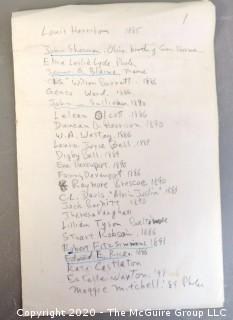 1
Louis Harrison 1885
John Sherman, Ohio, brother of Gen Sherman
Elsie Leslie Lyde Phila
James G. Blaine, Maine
"Wilson Barrett 1886
Geneva Ward. 1886
John Sullivan 1890
Lelean Olcott 1886
Duncan Harrison 1890
W.A. Westay 1886
Laura Joyce Bell 1887
Digby Bell 1889
Eva Davenport 1890
Fanny Davenport 1886
Raymore 1890
C.L. Davis "Alvin Joslin" 1889
Jack Barnitt 1890
Theresa Vaughan
Lillian Tyson Baltimore
Stuart Robson 1886
Robert Fitzsimmons 1891
Edward E. Rice 1886
Kate Castleton
Estelle Wayton '91
Maggie Mitchell '89 Phila
Copyright @ 2020 - The McGuire Group LLC